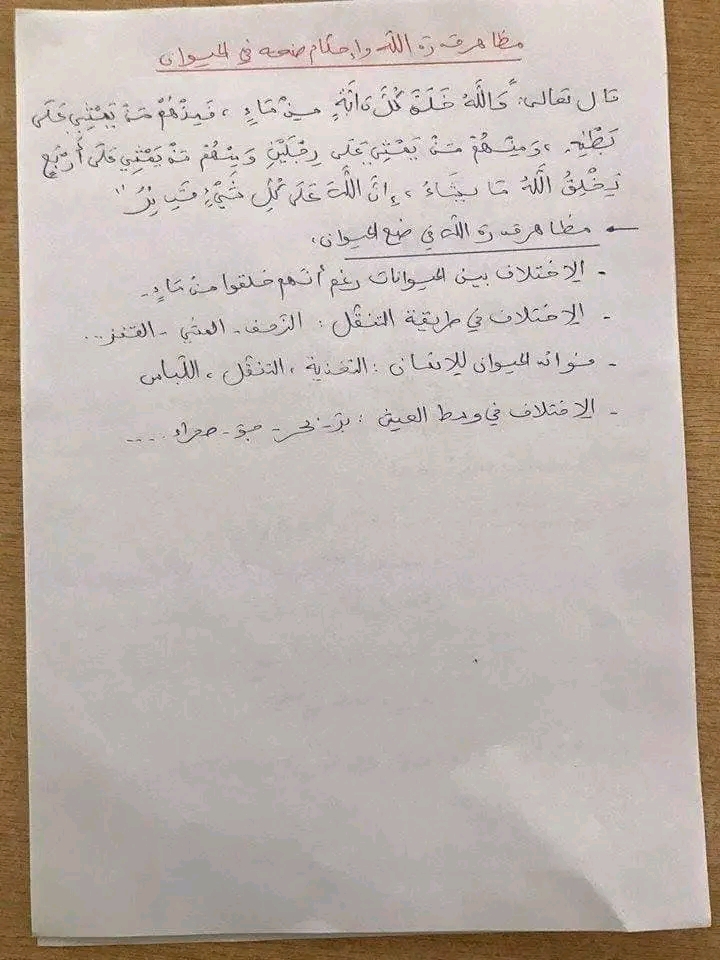 مظاهر قدرة الله وإحكام صنعه في الحيوان
قال تعالى: "وَاللَّهُ خَلَقَ كُلَّ دَابَّةٍ مِنْ مَاءٍ، فَمِنْهُمْ مَنْ يَمْشِي عَلَى
بَطْنِهِ، وَمِنْهُمْ مَنْ يَمْشِي عَلَى رِجْلَيْنِ وَمِنْهُمْ مَنْ يَمْشِي عَلَى أَرْبَعٍ
يَخْلُقُ اللَّهُ مَا يشَاءُ، إِنَّ اللَّهَ عَلَى كُلِّ شَيْءٍ قَدِيرٌ"
← مظاهر قدرة الله في صنع الحيوان:
- الاختلاف بين الحيوانات رغم أنهم خلقوا من مَاءٍ -
- الاختلاف في طريقة التنقّل: الزحف - المشي - القفز...
- فوائد الحيوان للإنسان: التغذية، التنقّل، اللّباس
- الاختلاف في وسط العيش: برّ - بحر - جوّ - صحراء ....